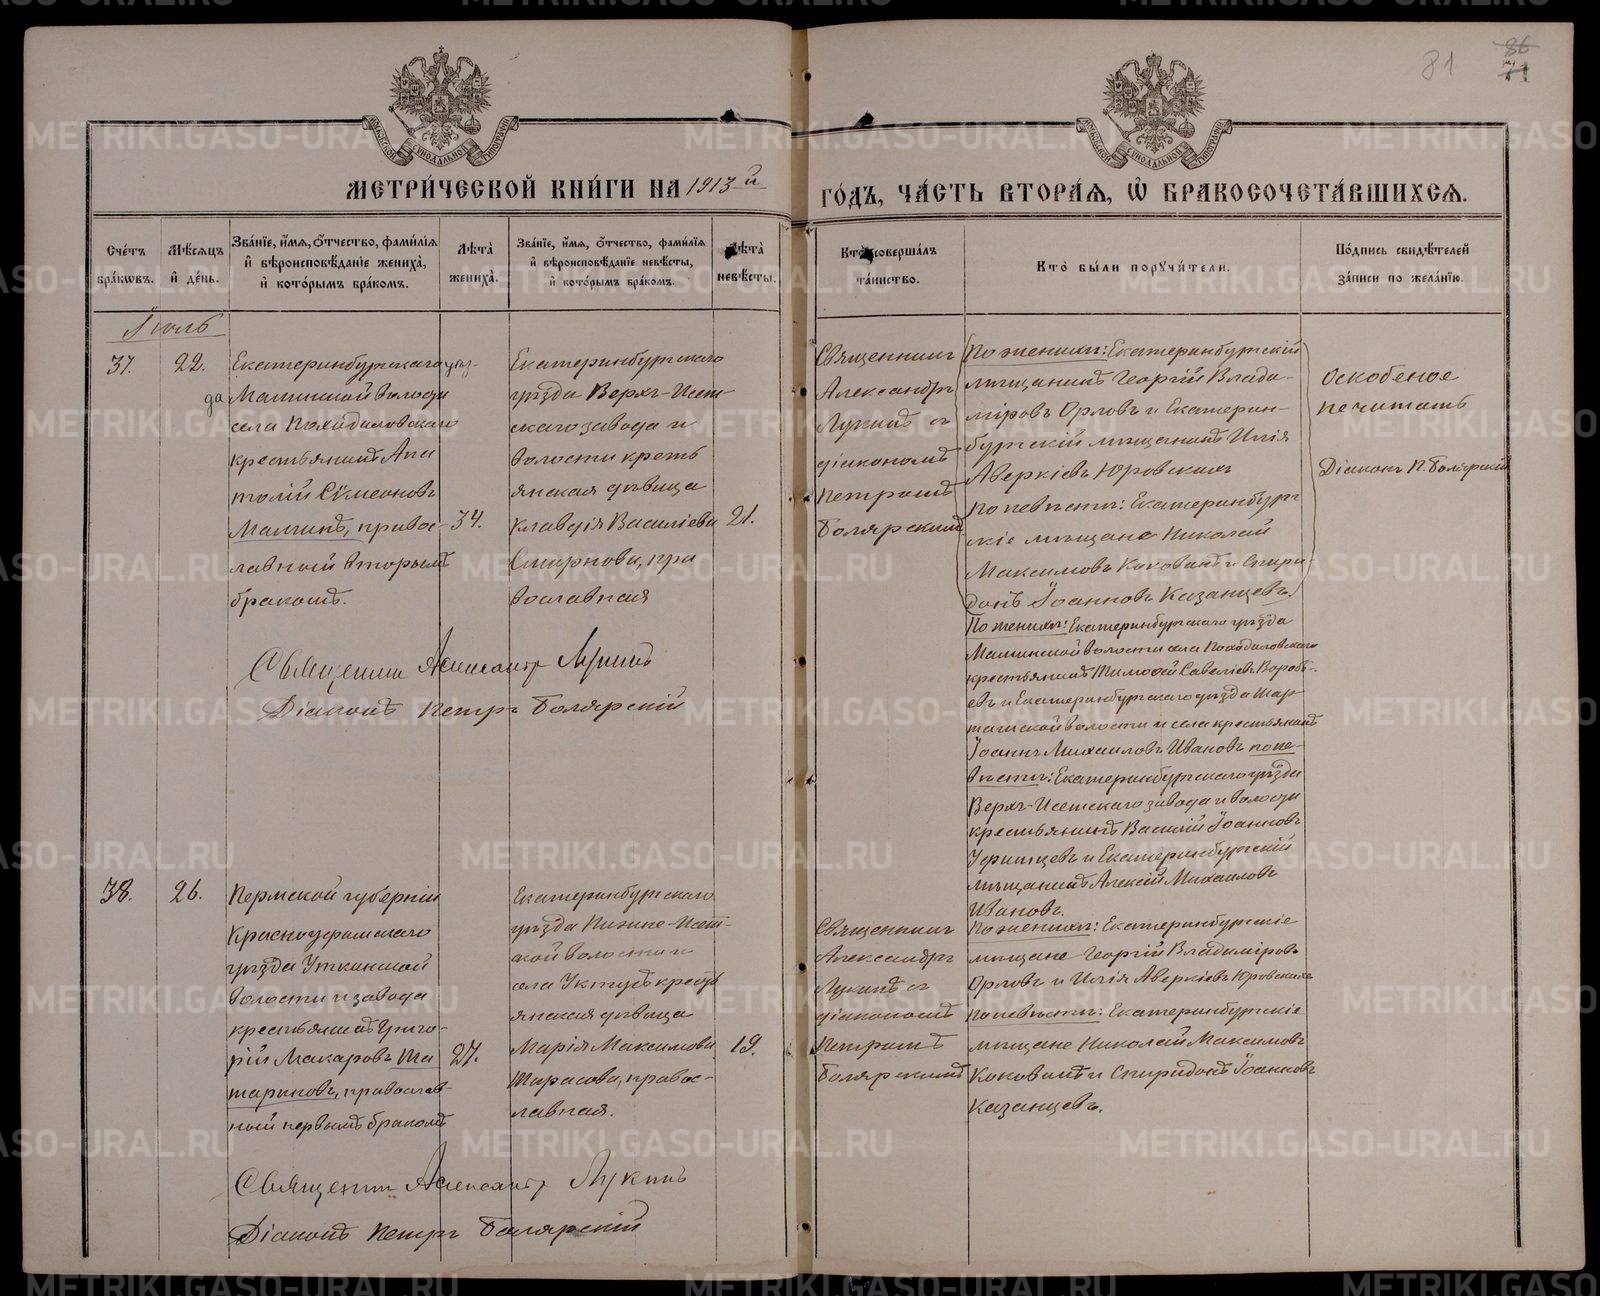 81
86
71
МОСКОВСКОЙ СѴНОДАЛЬНОЙ ТИПОГРАФІИ
МОСКОВСКОЙ СѴНОДАЛЬНОЙ ТИПОГРАФІИ
МЕТРИ́ЧЕСКОЙ КНИ́ГИ НА 1913-й
ГО́ДЪ, ЧА́СТЬ ВТОРА́Я, Ѡ БРАКОСОЧЕТА́ВШИХСЯ.
Сче́тъ бра́кѡвъ.
Мѣ́сяцъ и де́нь.
Зва́нїе, и́мя, ѻ́тчество, фами́лїя и вѣроисповѣ́данїе жениха̀, и кото́рымъ бра́комъ.
Лѣ́та жениха̀.
Зва́нїе, и́мя, ѻ́тчество, фами́лїя и вѣроисповѣ́данїе невѣ́сты, и кото́рымъ бра́комъ.
Лѣ́та невѣ́сты.
Кто̀ соверша́лъ та́инство.
Кто̀ бы́ли порꙋчи́тели.
По́дпись свидѣ́телей за́писи по жела́нїю.
Іюль
37.
22.
Екатеринбургскаго уѣз-
да Маминской волости
села Походиловскаго
крестьянинъ Ана
толій Сѵмеоновъ
Маминъ, правос-
лавный вторымъ
бракомъ.
34.
Екатеринбургскаго
уѣзда Верхъ-Исет-
скаго завода и
волости кресть
янская дѣвица
Клавдія Василіева
Смирнова, пра
вославная
21.
Священникъ
Александръ
Лукинъ съ
діакономъ
Петромъ
Болярскимъ.
По женихѣ: Екатеринбургскій
мѣщанинъ Георгій Влади-
міровъ Орловъ и Екатерин-
бургскій мѣщанинъ Илія
Аверкіевъ Юровскихъ
по невѣстѣ: Екатеринбург
скіе мѣщане Николай
Максимовъ Коковинъ и Спири
донъ Іоанновъ Казанцевъ.
Оскобеное
не читать
Діаконъ П. Болярскій
По женихѣ: Екатеринбургскаго уѣзда
Маминской волости села Походиловскаго
крестьянинъ Тимофей Савеліевъ Вороб-
евъ и Екатеринбургскаго уѣзда Шар-
ташской волости и села крестьянинъ
Іоаннъ Михаиловъ Ивановъ по не-
вѣстѣ: Екатеринбургскаго уѣзда
Верхъ-Исетскаго завода и волости
крестьянинъ Василій Іоанновъ
и Екатеринбургскій
мѣщанинъ Алексій Михаиловъ
Ивановъ.
Священникъ Александръ Лукинъ
Діаконъ Петръ Болярскій
38.
26.
Пермской губерніи
Красноуфимскаго
уѣзда Уткинской
волости и завода
крестьянинъ Григо-
рій Макаровъ Та
тариновъ, православ-
ный первымъ бракомъ
27.
Екатеринбургскаго
уѣзда Нижне-Исет-
ской волости и
села Уктусъ кресть
янская дѣвица
Марія Максимова
Тарасова, правос-
лавная.
19.
Священникъ
Александръ
Лукинъ съ
діакономъ
Петромъ
Болярскимъ
По женихѣ: Екатеринбургскіе
мѣщане Георгій Владиміровъ
Орловъ и Илія Аверкіевъ Юровскихъ
по невѣстѣ: Екатеринбургскіе
мѣщане Николай Максимовъ
Коковинъ и Спиридонъ Іоанновъ
Казанцевъ.
Священникъ Александръ Лукинъ
Діаконъ Петръ Болярскій
METRIKI.GASO-URAL.RU